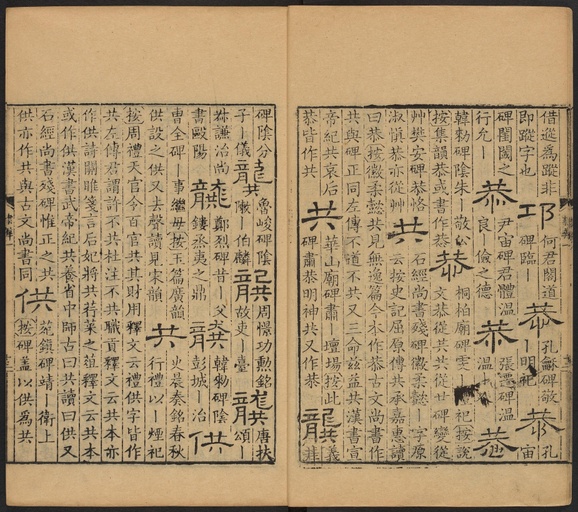 借䢨爲蹤非
即蹤字也
邛
何君閣道
碑臨丨
恭
孔龢碑敬
丨明祀
恭
孔
宙
碑閨閫之
行允丨
恭
尹宙碑君體溫
良丨儉之德
恭
張遷碑溫
溫丨
恭
韓勑碑陰朱丨敬公
按集韻恭或書作㳟
恭
桐柏廟碑雯丨祀按說
文恭從共從廿碑變從
艸樊安碑恭恪
淑慎恭亦從艸
共
石經尚書殘碑徽柔懿丨字原
云按史記屈原傳共承嘉惠讀
曰恭按徽柔懿共見無逸篇今本作恭古文尚書作
共與碑正同左傳不道不共又三命茲益共漢書宣
帝紀共哀后
恭皆作共
共
華山廟碑肅丨壇場按此
碑肅恭明神共又作恭
龔
義
井
碑陰分
子丨儀
龔
魯峻碑陰
陬丨伯麟
龔
周憬功勳銘
故吏丨臺
龔
唐扶
頌丨
謙治尚
書歐陽
龔
鄭烈碑昔丨父
鏤烝彝之鼎
龔
韓勑碑陰
彭城丨治
供
曹全碑丨事繼母按玉篇廣韻
供設之供又去聲讀見宋韻
共
史晨奏銘春秋
行禮以丨煙祀
按周禮天官今百官共其財用釋文云禮供字皆作
共左傳君謂許不共杜注不共職貢釋文云共本亦
作供詩關雎箋言后妃將共荇菜之葅釋文云共本
或作供漢書武帝紀共養省中師古曰共讀曰供又
石經尚書殘碑惟正之共
供亦作共與古文尚書同
供
鎮碑靖丨衛上
按碑蓋以供為共